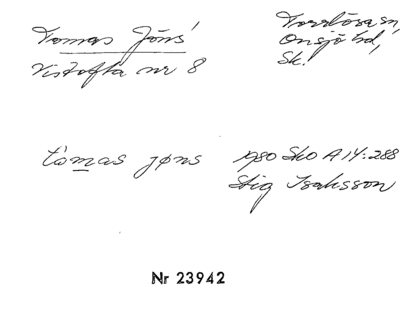 Tomas Jöns'
Vistofta nr 8
Torrlösa sn,
Onsjö hd,
Sk.
tomas jøns
1980 Sko A 14:288
Stig Isaksson
Nr 23942